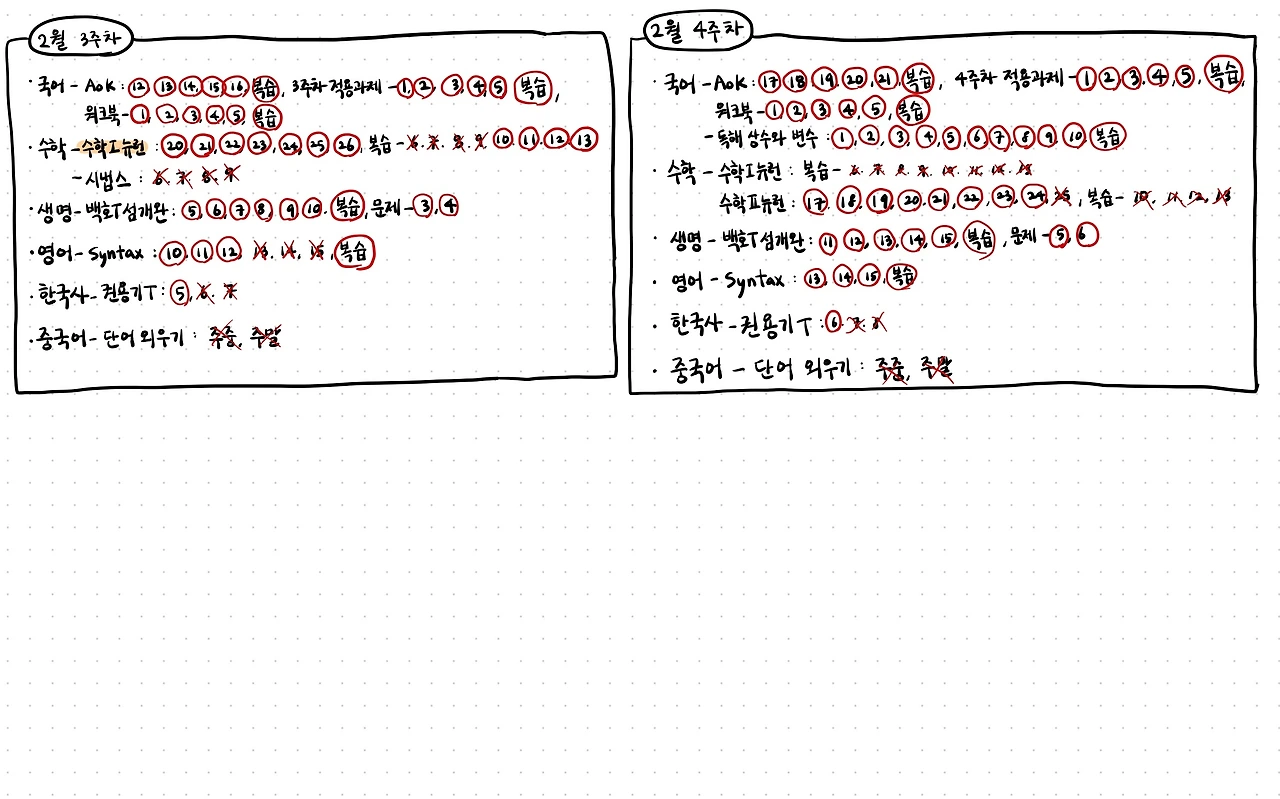 2월 3주차
· 국어 - AOK : 12, 13, 14, 15, 16, 복습, 3주차 적용과제 - 1, 2, 3, 4, 5, 복습,
워크북 - 1, 2, 3, 4, 5, 복습
· 수학 - 수학Ⅰ뉴런 : 20, 21, 22, 23, 24, 25, 26, 복습 - 6. 7. 8. 9. 10. 11. 12. 13
- 시냅스 : 6. 7. 8. 9
· 생명 - 백호T 섬개완 : 5, 6, 7, 8, 9, 10. 복습, 문제 - 3, 4
· 영어 - Syntax : 10. 11. 12, 13. 14. 15, 복습
· 한국사 - 권용기T : 5, 6. 7
· 중국어 - 단어 외우기 : 주중, 주말
2월 4주차
· 국어 - AOK : 17, 18, 19, 20, 21, 복습, 4주차 적용과제 - 1, 2, 3. 4, 5, 복습,
워크북 - 1, 2, 3, 4, 5, 복습
- 독해 상수와 변수 : 1, 2, 3, 4, 5, 6, 7, 8, 9, 10, 복습
· 수학 - 수학Ⅰ뉴런 : 복습 -
수학Ⅱ뉴런 : 17. 18. 19, 20. 21, 22, 23, 24, 25, 복습 - 10. 11. 12. 13
· 생명 - 백호T 섬개완 : 11, 12, 13, 14, 15, 복습, 문제 - 5, 6
· 영어 - Syntax : 13, 14, 15, 복습
· 한국사 - 권용기T : 6. 7. 8
· 중국어 - 단어 외우기 : 주중, 주말